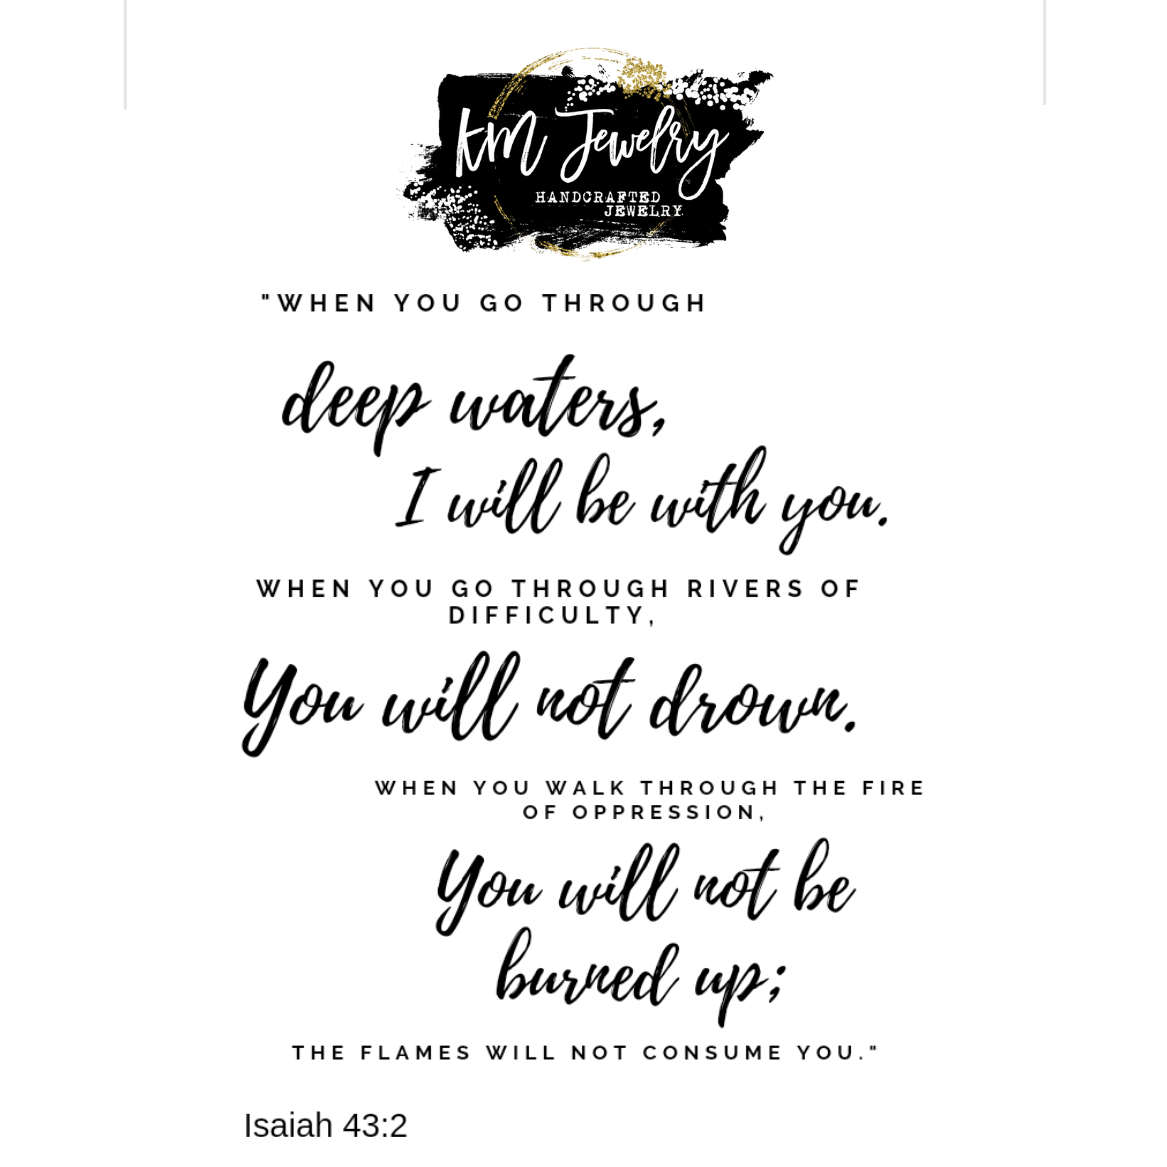 KM Jewelry
HANDCRAFTED
JEWELRY
"WHEN YOU GO THROUGH
deep waters,
I will be with you.
WHEN YOU GO THROUGH RIVERS OF
DIFFICULTY,
You will not drown.
WHEN YOU WALK THROUGH THE FIRE
OF OPPRESSION,
You will not be
burned up;
THE FLAMES WILL NOT CONSUME YOU."
Isaiah 43:2